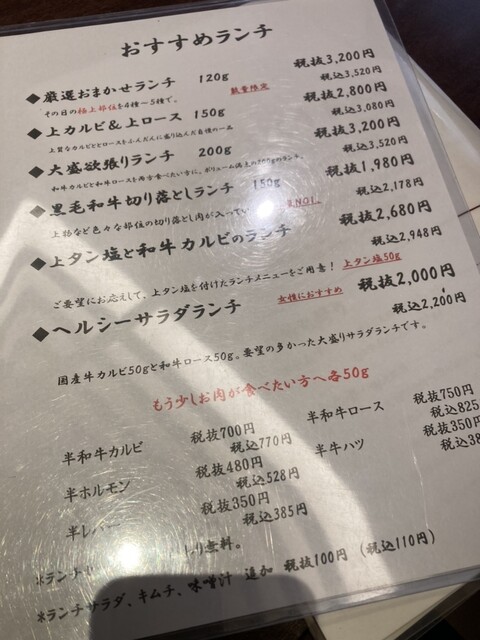 おすすめランチ
◆厳選おまかせランチ 120g 税抜3,200円
その日の極上部位を4種~5種で。 数量限定 税込3,520円
◆上カルビ&上ロース 150g 税抜2,800円
上質なカルビとロースをふんだんに盛り込んだ自慢の一品 税込3,080円
◆大盛欲張りランチ 200g 税抜3,200円
和牛カルビと和牛ロースを両方食べたい方に、ボリューム満点の200gのランチ。 税込3,520円
◆黒毛和牛切り落としランチ 150g 税抜1,980円
上物など色々な部位の切り落とし肉が入ってい NO1. 税込2,178円
◆上タン塩と和牛カルビのランチ 税抜2,680円
税込2,948円
ご要望にお応えして、上タン塩を付けたランチメニューをご用意! 上タン塩50g
◆ヘルシーサラダランチ 女性におすすめ 税抜2,000円
税込2,200円
国産牛カルビ50gと和牛ロース50g。要望の多かった大盛りサラダランチです。
もう少しお肉が食べたい方へ各50g
半和牛カルビ 税抜700円 半和牛ロース 税抜750円
税込770円 税込825
半ホルモン 税抜480円 半牛ハツ 税抜350円
税込528円 税込38
半レバー 税抜350円
税込385円
*ランチ り無料。
*ランチサラダ、キムチ、味噌汁 追加 税抜100円(税込110円)